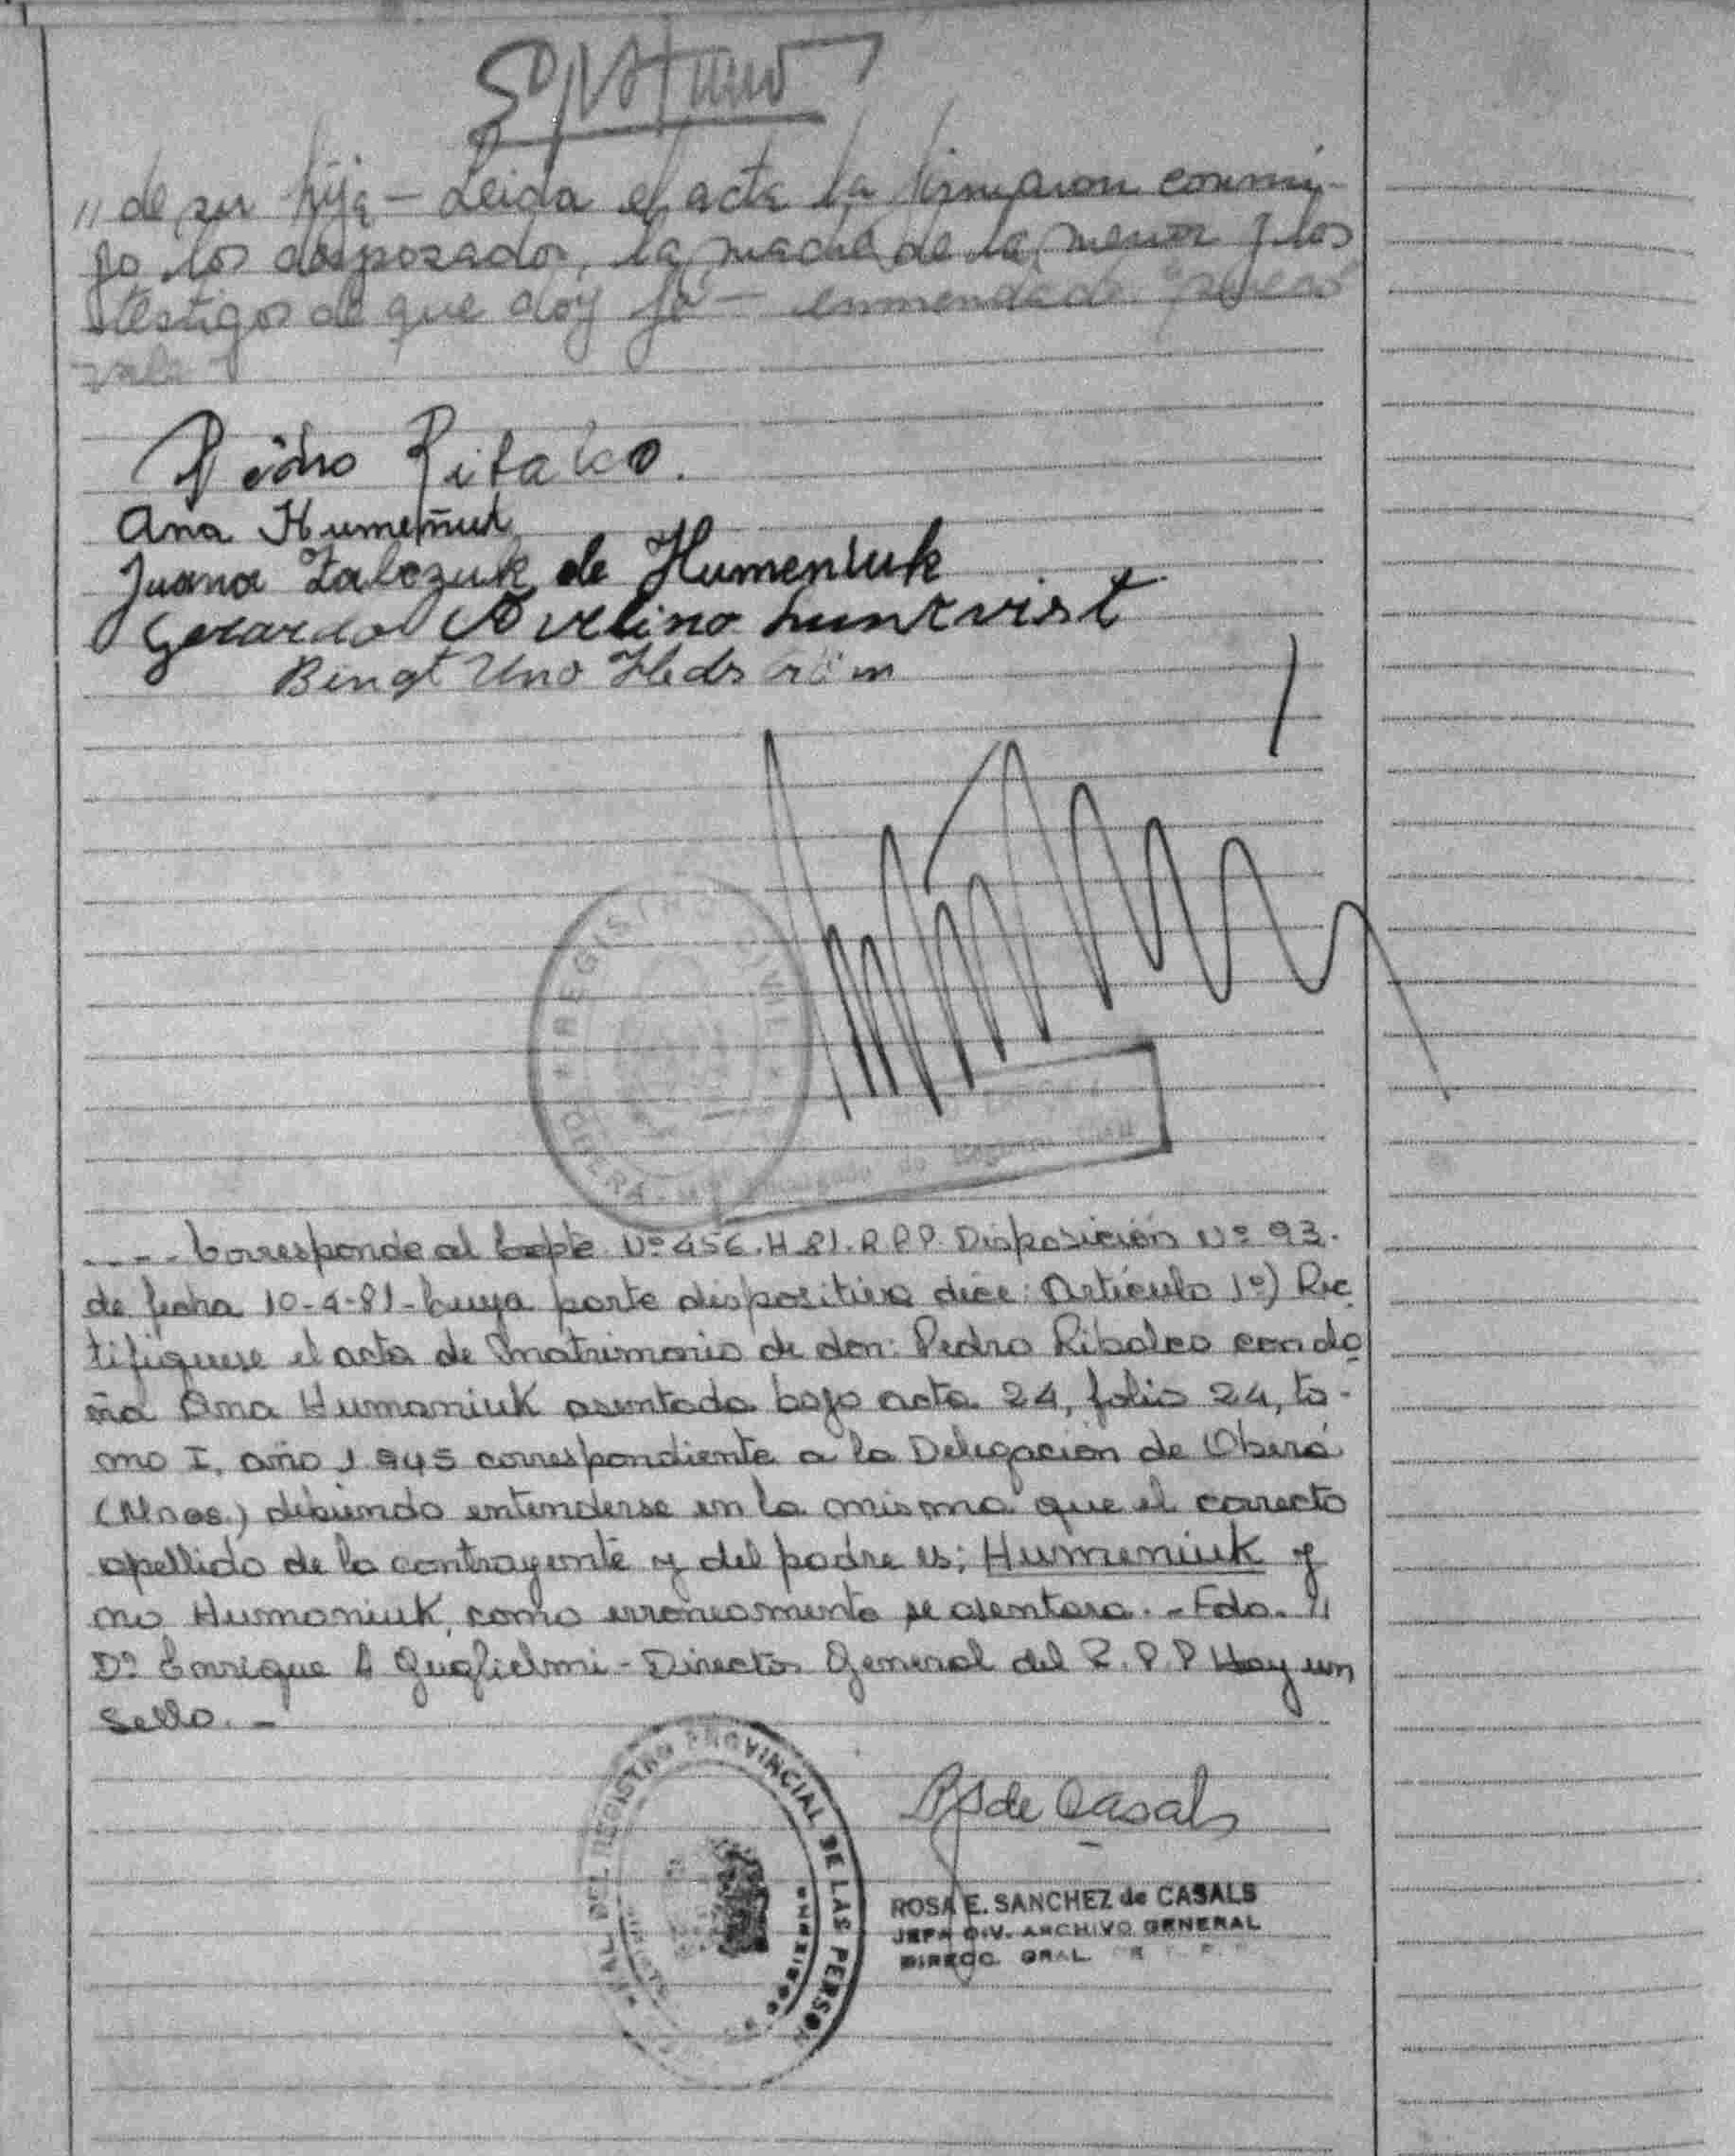 " de su hija – Leida el acta la firmaron conmi-
go los desposados, la madre de la menor y los
testigos de que doy fé – enmendado "
vale
Pedro Ribalco.
Ana Humeñuk
Juana Zalezuk de Humeniuk
Gerardo Avelino Lunkvist
Bengt Uno Hedström
REGISTRO CIVIL
OBERA
Encargado de Registro Civil
---- Corresponde al Expte Nº 456.H 81.R P P. Disposición Nº 93.
de fecha 10-4-81- Cuya parte dispositiva dice: Artículo 1º) Rec
tifiquese el acta de matrimonio de don: Pedro Ribalco con do
ña Ana Humaniuk asentada bajo acta 24, folio 24, to-
mo I, año 1.945 correspondiente a la Delegación de Oberá
(Mnes.) debiendo entenderse en la misma que el correcto
apellido de la contrayente y del padre es; Humeniuk y
no Humaniuk, como erroneamente se asentara. - Fdo. //
Dº Enrique A Guglielmi - Director General del R.P.P Hay un
Sello. -
DEL REGISTRO PROVINCIAL DE LAS PERSON
MISIONES
RS de Casals
ROSA E. SANCHEZ de CASALS
JEFA DIV. ARCHIVO GENERAL
DIRECC. GRAL.